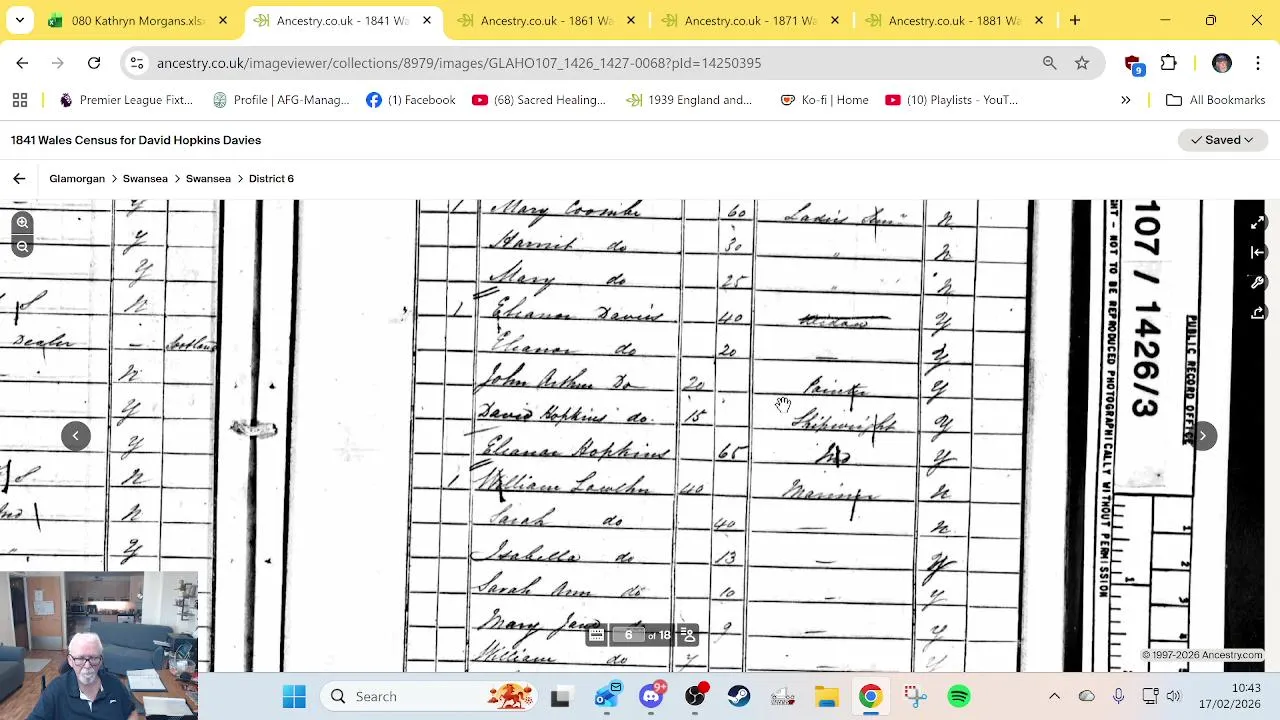 080 Kathryn Morgans.xls
Ancestry.co.uk - 1841 Wa
Ancestry.co.uk - 1861 Wa
Ancestry.co.uk - 1871 Wa
Ancestry.co.uk - 1881 Wa
ancestry.co.uk/imageviewer/collections/8979/images/GLAHO107_1426_1427-0068?pId=14250395
9
Premier League Fixt...
Profile | AFG-Manag...
(1) Facebook
(68) Sacred Healing...
1939 England and...
Ko-fi | Home
(10) Playlists - YouT...
All Bookmarks
1841 Wales Census for David Hopkins Davies
Saved
Glamorgan > Swansea > Swansea > District 6
1 Mary Coombe 60 N
Harriet do 30 " N
Mary do 25 " N
1 Eleanor Davies 40 Y
Eleanor do 20 — Y
John Arthur Do 20 Painter Y
David Hopkins do 15 Shipwright Y
Eleanor Hopkins 65 Ind Y
1 William 40 Mariner N
Sarah do 40 — N
Isabella do 13 — Y
Sarah Ann do 10 — Y
Mary Jane 9 — Y
William do 7 Y
Y
Y
Y
N
Dealer — Scotland
N
Y
Y
N
N
Y
107 / 1426/3
PUBLIC RECORD OFFICE
HT - NOT TO BE REPRODUCED PHOTOGRAPHICALLY WITHOUT PERMISSION
1
2
3
4
1
6 of 18
© 1997-2026 Ancestry.com
Search
9+
10:43
17/02/2026